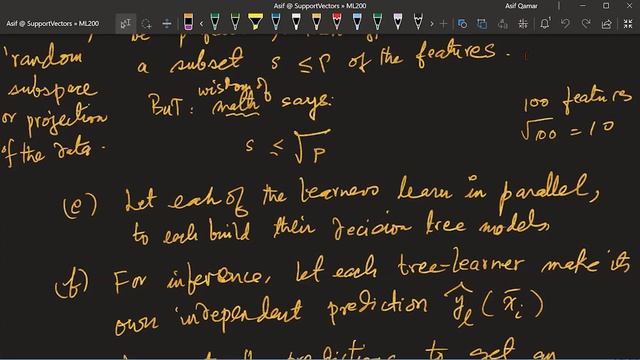 Asif @ SupportVectors » ML200
Asif @ SupportVectors » ML200
Asif Qamar
'random
subspace
or projection
of the data.
a subset s ≤ P of the features.
BUT: wisdom of math says:
s ≤ √P
100 features
√100 = 10
(e) Let each of the learners learn in parallel,
to each build their decision tree models
(f) For inference, let each tree-learner make its
own independent prediction ŷ_ℓ (x̄_i)
predictions to get an